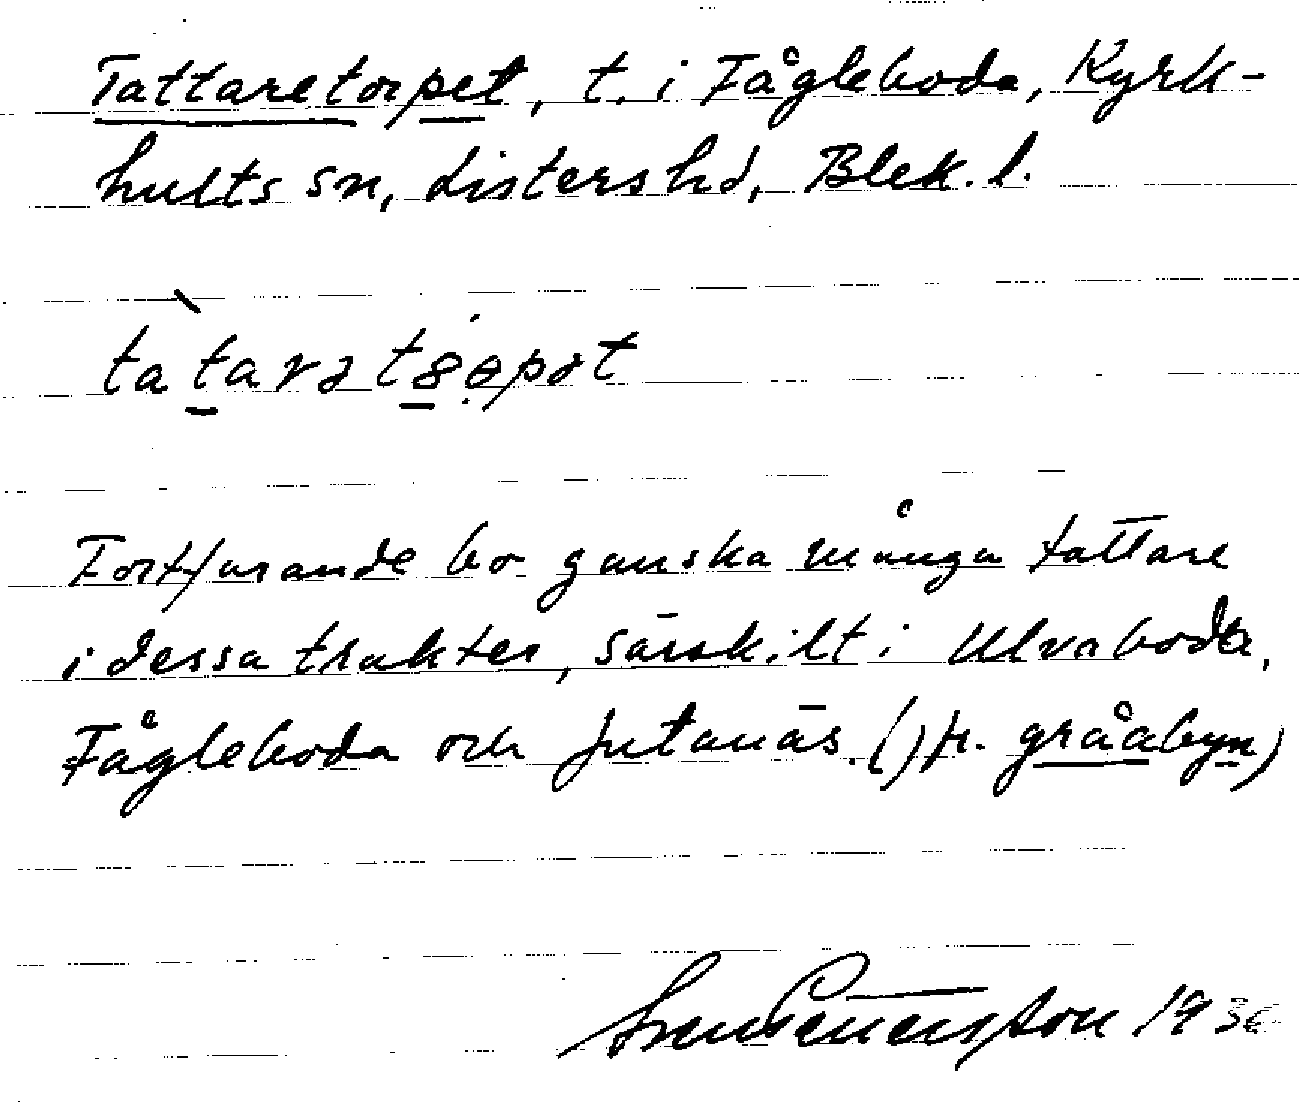 Tattaretorpet, t. i Fågleboda, Kyrk-
hults sn, Listers hd, Blek. l.
Fortfarande bo ganska många tattare
i dessa trakter, särskilt i Ulvaboda,
Fågleboda och Jutanäs. (Jfr. gråabyn)
1936